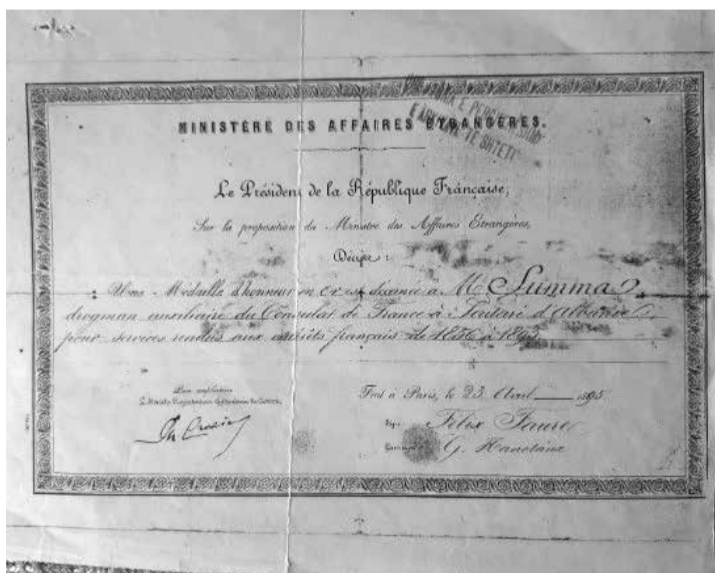 MINISTÈRE DES AFFAIRES ÉTRANGÈRES.
Le Président de la République Française,
Sur la proposition du Ministre des Affaires Etrangères,
Décide :
Une Médaille d'honneur en or est décernée à M. Summa,
drogman auxiliaire du Consulat de France à Scutari d'Albanie,
pour services rendus aux intérêts français de 1856 à
Pour ampliation
Fait à Paris, le 23 Avril 1895
Signé Félix Faure
G. Hanotaux